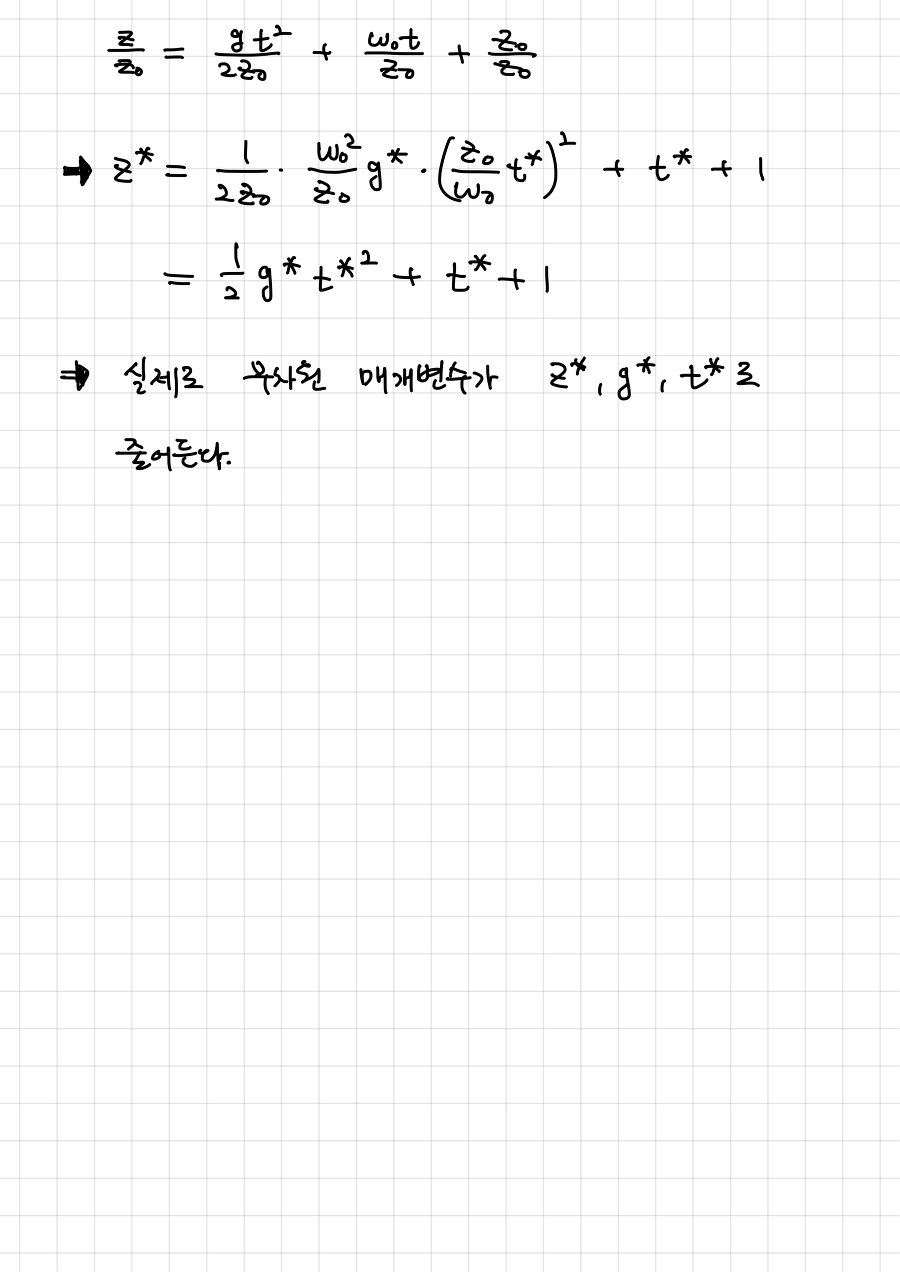 z/z₀ = gt²/2z₀ + ω₀t/z₀ + z₀/z₀
➡ z* = 1/2z₀ · ω₀²/z₀ g* · (z₀/ω₀ t*)² + t* + 1
= 1/2 g* t*² + t* + 1
⇒ 실제로 무차원 매개변수가 z*, g*, t*로
줄어든다.